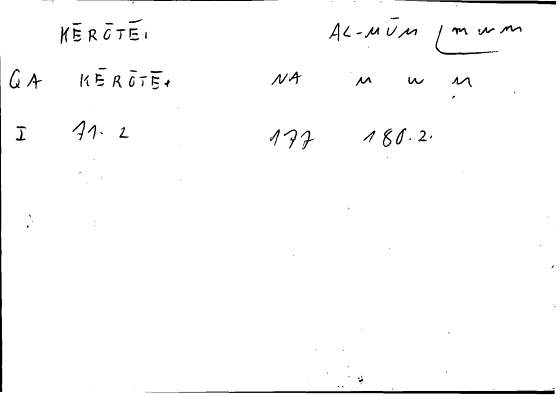 KĒRŌTĒ, AL-MŪM mwm
QA KĒRŌTĒ+ NA M W M
I 71. 2 177 180.2.